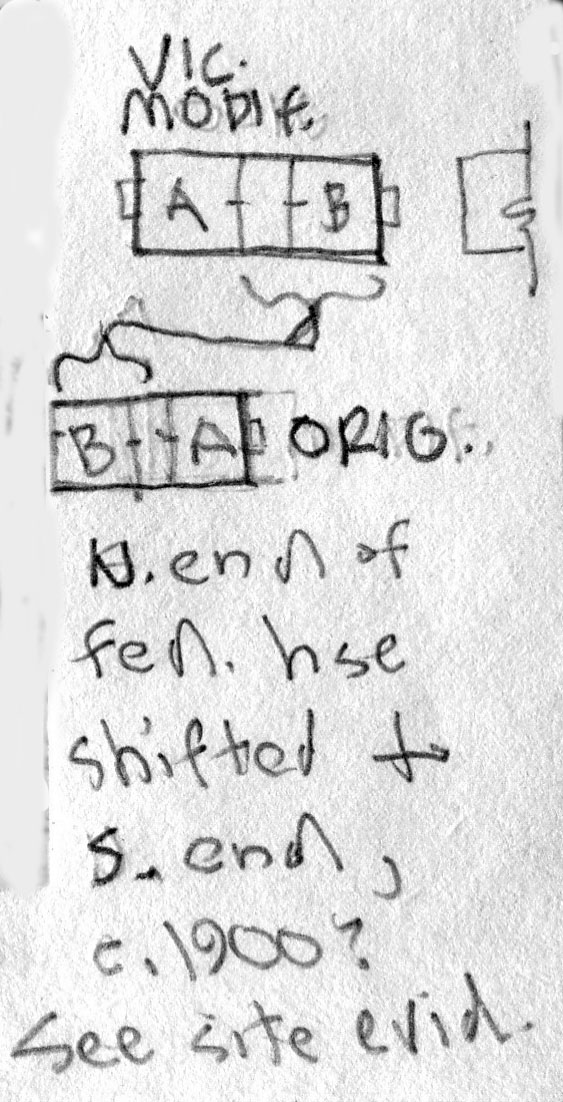 VIC.
MODIF.
A B
B A ORIG.
N. end of
fed. hse
shifted to
S. end,
c. 1900?
See site evid.